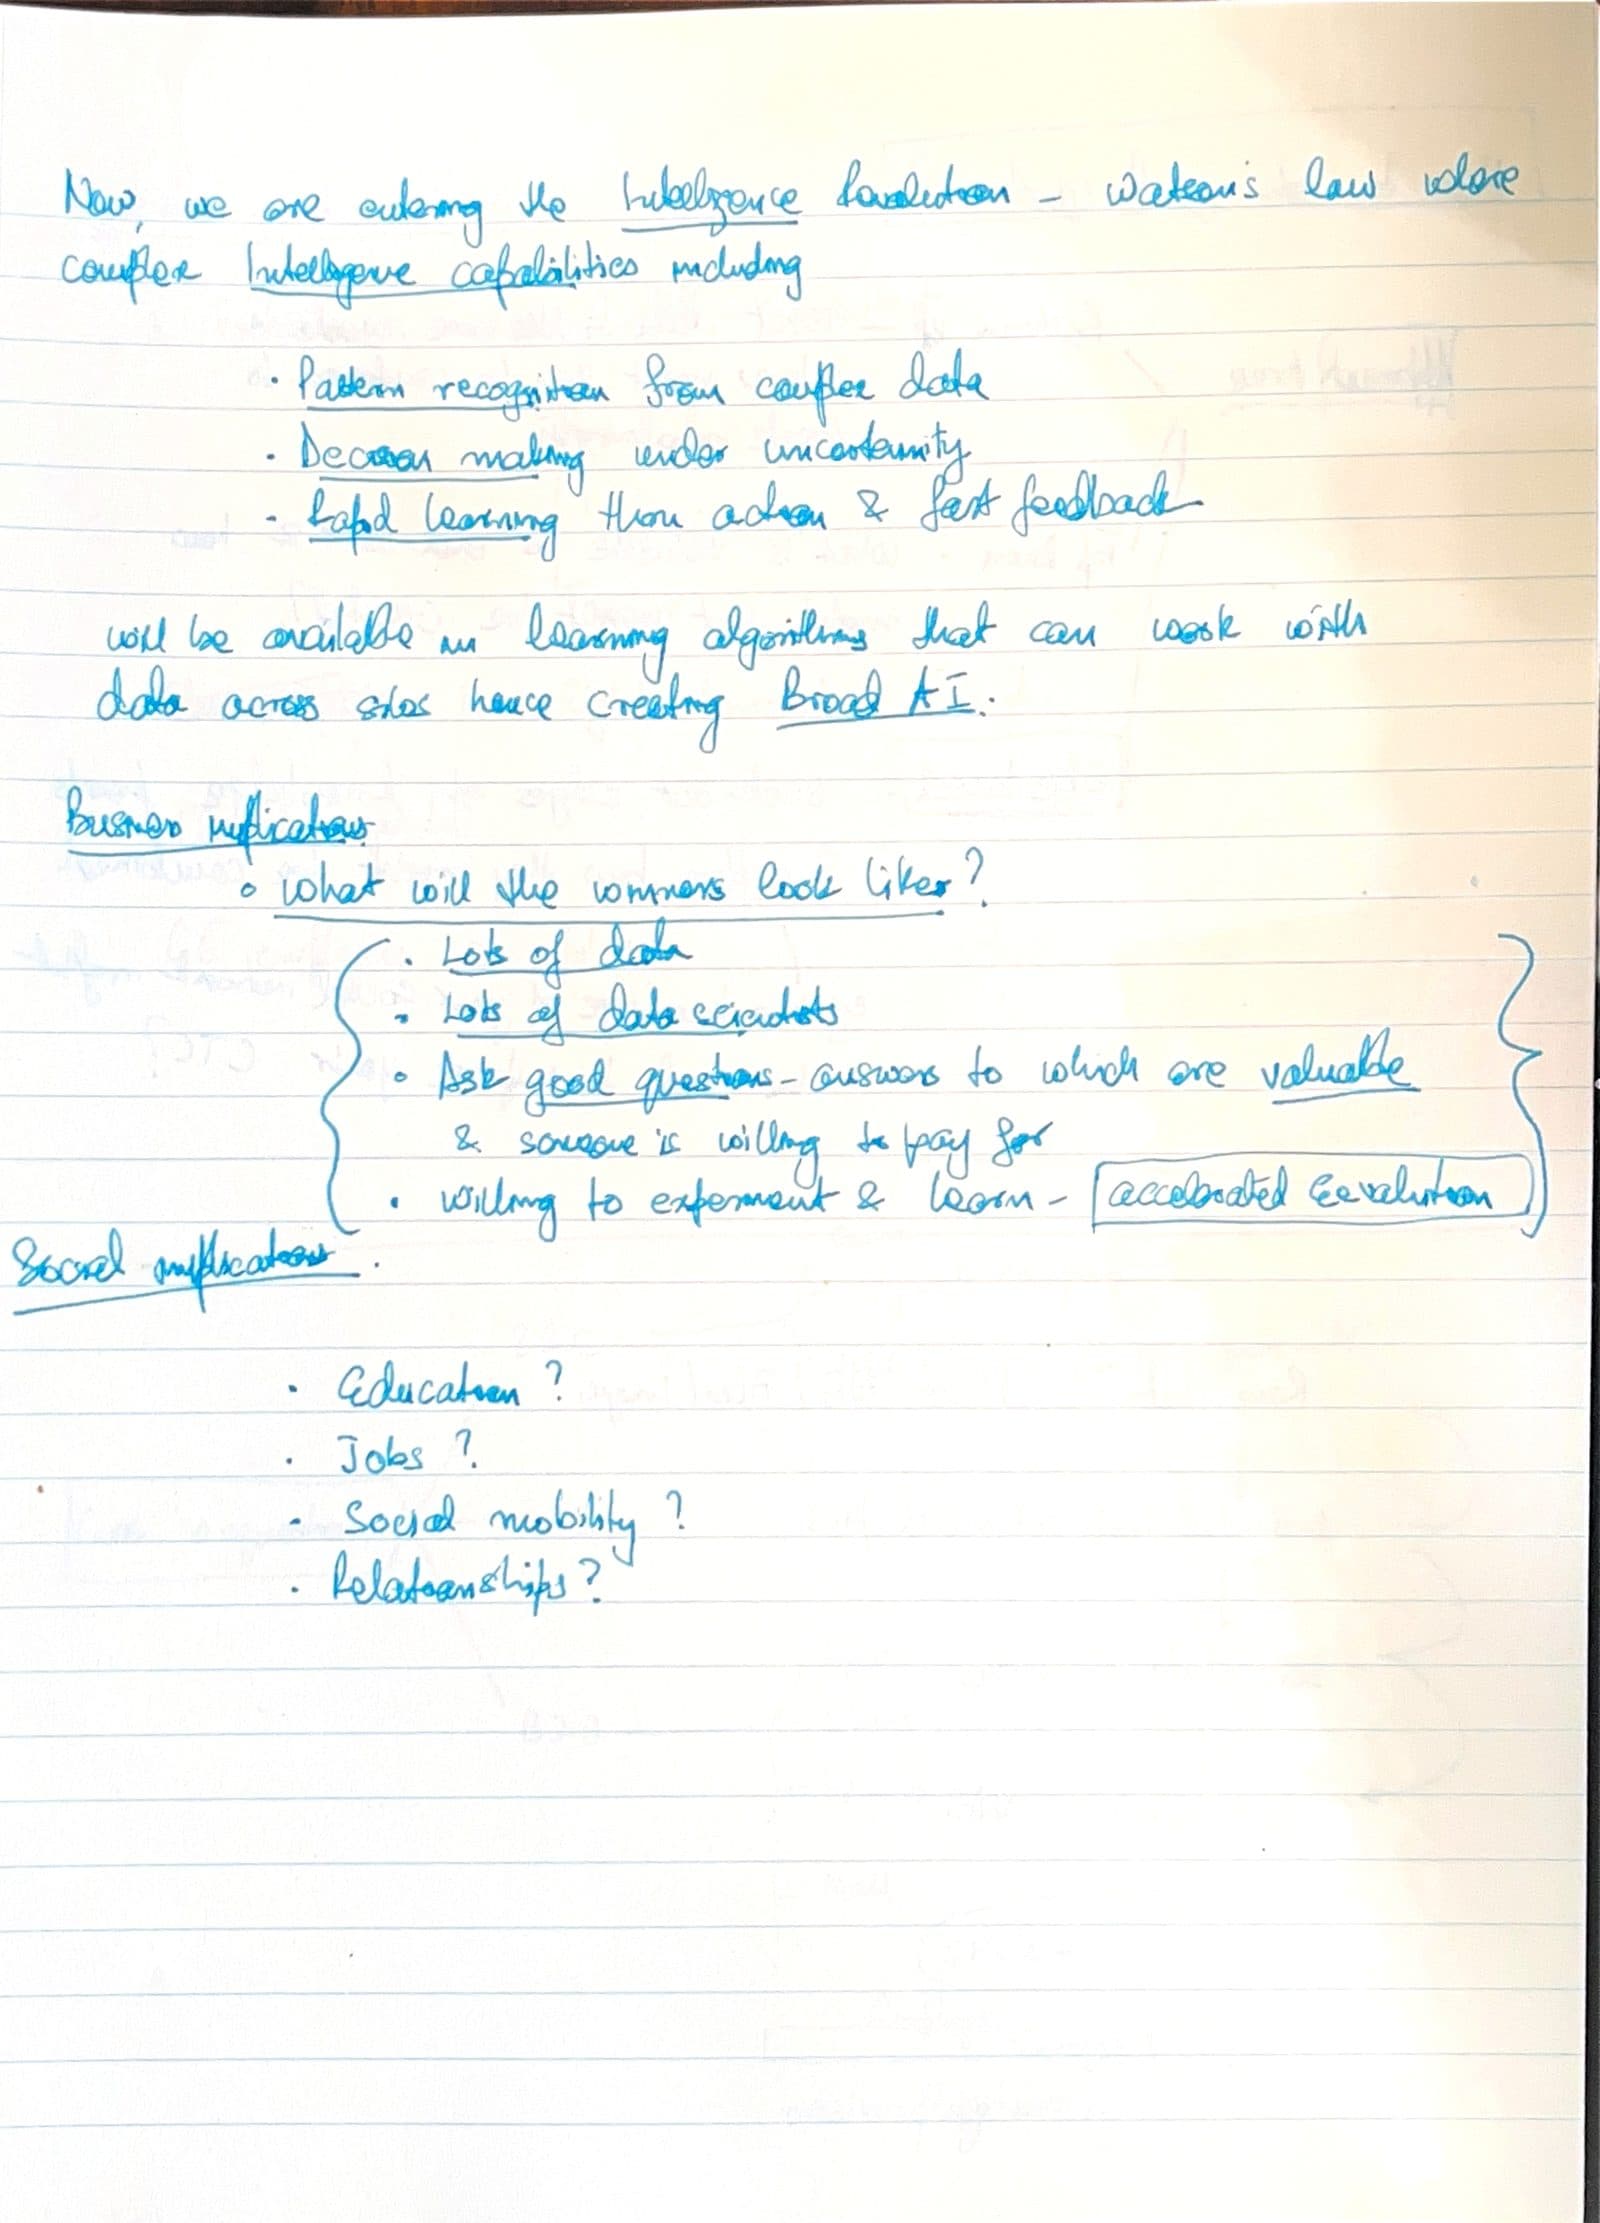 Now, we are entering the Intelligence Revolution - Watson's law where
complex Intelligence capabilities including
· Pattern recognition from complex data
· Decision making under uncertainity
- Rapid learning thru action & fast feedback
will be available in learning algorithms that can work with
data across silos hence creating Broad AI.
Business implications
o What will the winners look like?
· Lots of data
· Lots of data scientists
· Ask good questions - answers to which are valuable
& someone is willing to pay for
· willing to experiment & learn - accelerated Eevolution
Social implications.
· Education?
· Jobs?
· Social mobility?
· Relationships?